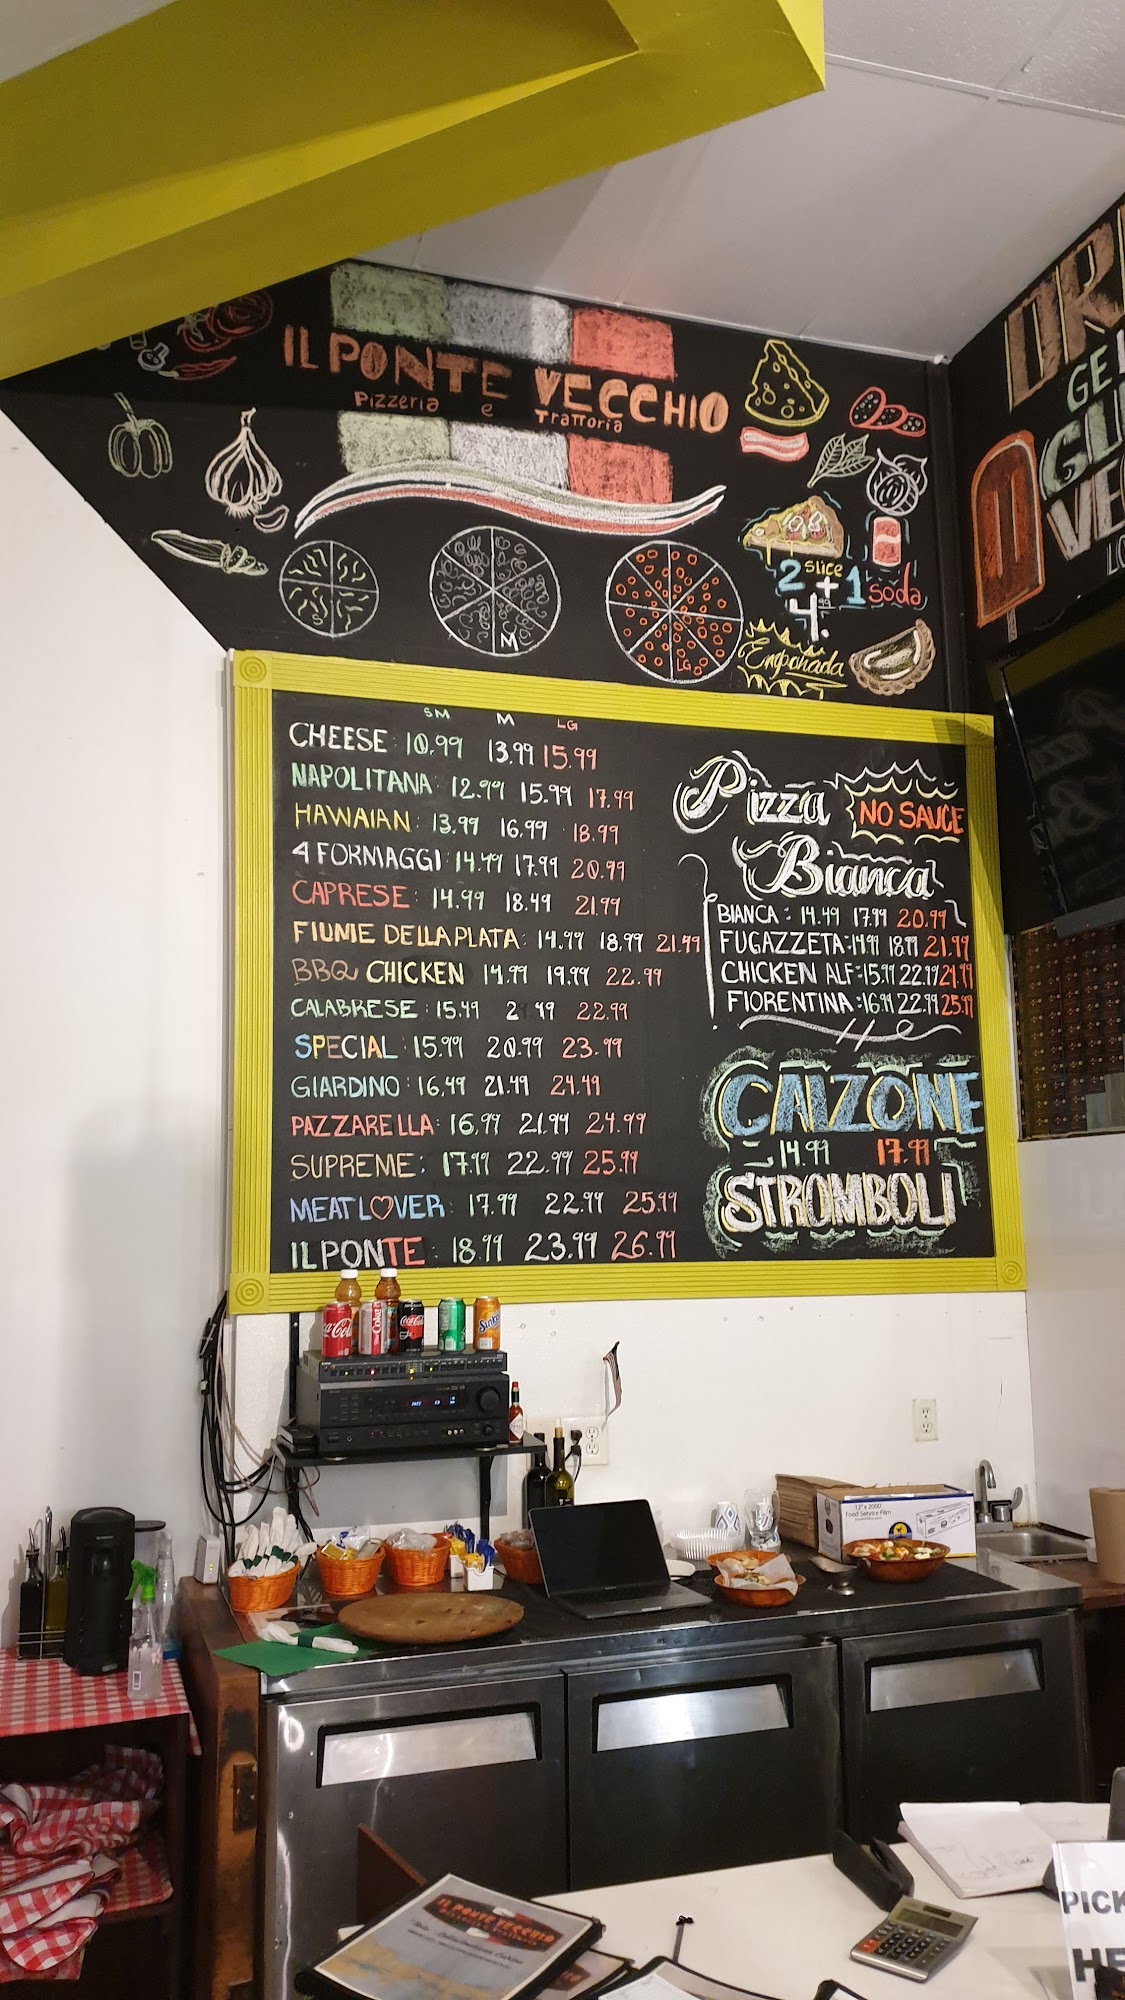 IL PONTE VECCHIO
Pizzeria e Trattoria
2 slice + 1 soda
4.99
Empanada
S
M
LG
SM M LG
CHEESE: 10.99 13.99 15.99
NAPOLITANA: 12.99 15.99 17.99
HAWAIAN: 13.99 16.99 18.99
4 FORMAGGI: 14.49 17.99 20.99
CAPRESE: 14.99 18.49 21.99
FIUME DELLA PLATA: 14.99 18.99 21.49
BBQ CHICKEN 14.99 19.99 22.99
CALABRESE: 15.49 2 49 22.99
SPECIAL: 15.99 20.99 23.99
GIARDINO: 16.49 21.49 24.49
PAZZARELLA: 16.99 21.99 24.99
SUPREME: 17.99 22.99 25.99
MEAT LOVER: 17.99 22.99 25.99
IL PONTE: 18.99 23.99 26.99
Pizza
NO SAUCE
Bianca
BIANCA: 14.49 17.99 20.99
FUGAZZETA: 14.99 18.99 21.99
CHICKEN ALF: 15.99 22.99 24.99
FIORENTINA: 16.99 22.99 25.99
CALZONE
14.99 17.99
STROMBOLI
Coca-Cola
12" x 2000'
Food Service Film
IL PONTE VECCHIO
PICK
HE